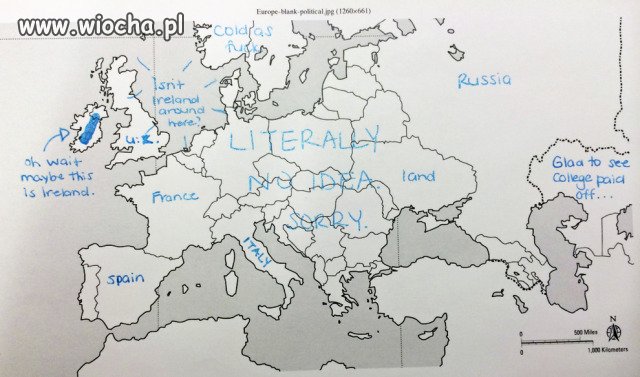 Europe-blank-political.jpg (1260x661)
www.wiocha.pl
Cold as
fuck
Isn't
Ireland
around
here?
Russia
U.K.
LITERALLY
NO IDEA.
SORRY.
oh wait
maybe this
is Ireland.
France
land
Glad to see
College paid
off...
ITALY
spain
N
0
500 Miles
0
1,000 Kilometers